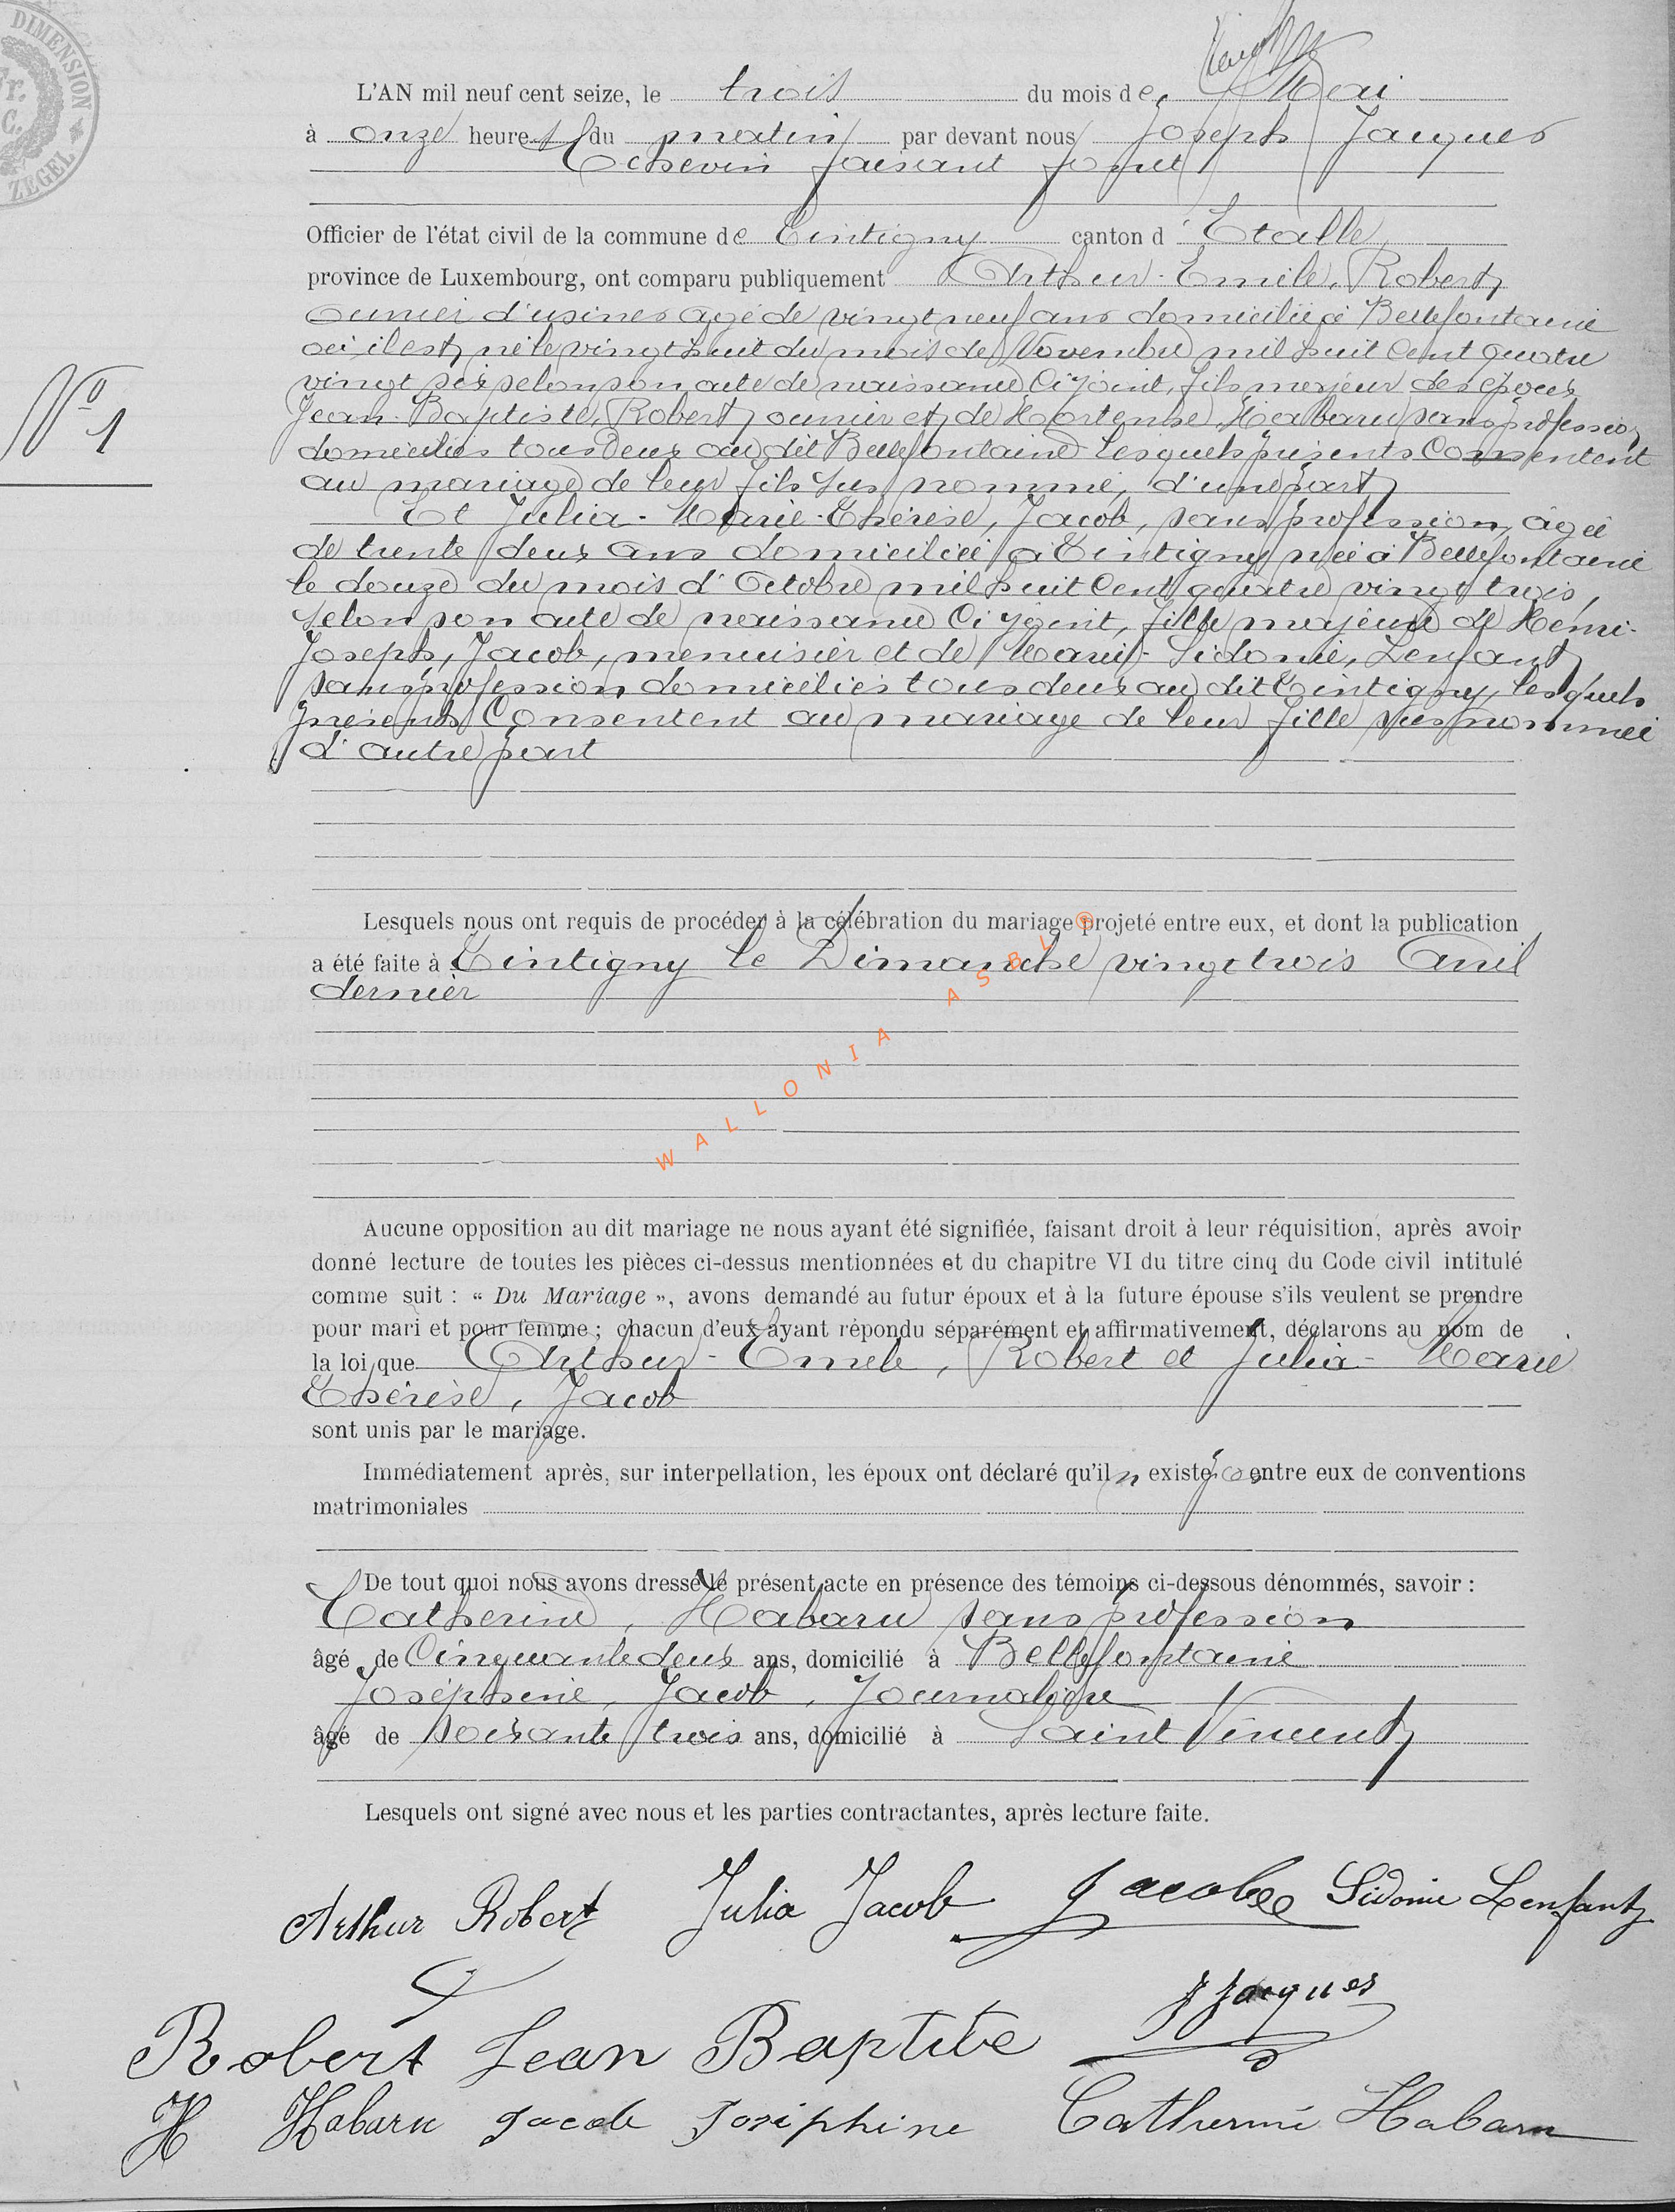 DIMENSION
Fr.
C.
ZEGEL
L'AN mil neuf cent seize, le trois du mois de Mai
à onze heures du matin par devant nous Joseph Jacques
Echevin faisant fonct
Officier de l'état civil de la commune de Tintigny canton d'Etalle,
province de Luxembourg, ont comparu publiquement Arthur-Emile, Robert,
ouvrier d'usines agé de vingt neuf ans domicilié à Bellefontaine
où il est né le vingt huit du mois de Novembre mil huit cent quatre
vingt six selon son acte de naissance ci joint, fils majeur des époux
Jean-Baptiste, Robert, ouvrier et de Hortense, Habaru sans profession,
domiciliés tous deux au dit Bellefontaine lesquels présents consentent
au mariage de leur fils sus nommé, d'une part,
N° 1
Et Julia-Marie-Thérèse, Jacob, sans profession, âgée
de trente deux ans domiciliée à Tintigny née à Bellefontaine
le douze du mois d'Octobre mil huit cent quatre vingt trois,
selon son acte de naissance ci joint, fille majeure de Henri-
Joseph, Jacob, menuisier et de Marie-Sidonie, Lenfant,
sans profession domiciliés tous deux au dit Tintigny, lesquels
présents consentent au mariage de leur fille sus nommée
d'autre part
Lesquels nous ont requis de procéder à la célébration du mariage projeté entre eux, et dont la publication
a été faite à Tintigny le Dimanche vingt trois Avril
dernier
WALLONIA ASBL ®
Aucune opposition au dit mariage ne nous ayant été signifiée, faisant droit à leur réquisition, après avoir
donné lecture de toutes les pièces ci-dessus mentionnées et du chapitre VI du titre cinq du Code civil intitulé
comme suit : « Du Mariage », avons demandé au futur époux et à la future épouse s'ils veulent se prendre
pour mari et pour femme ; chacun d'eux ayant répondu séparément et affirmativement, déclarons au nom de
la loi que Arthur-Emile, Robert et Julia-Marie
Thérèse, Jacob
sont unis par le mariage.
Immédiatement après, sur interpellation, les époux ont déclaré qu'il n existe pas entre eux de conventions
matrimoniales
De tout quoi nous avons dressé le présent acte en présence des témoins ci-dessous dénommés, savoir :
Catherine, Habaru sans profession
âgé de Cinquante deux ans, domicilié à Bellefontaine
Joséphine, Jacob, Journalière
âgé de soixante trois ans, domicilié à Saint Vincent,
Lesquels ont signé avec nous et les parties contractantes, après lecture faite.
Arthur Robert Julia Jacob Jacob Sidonie Lenfant
J Jacques
Robert Jean Baptite
H Habaru Jacob Joséphine Catherine Habaru